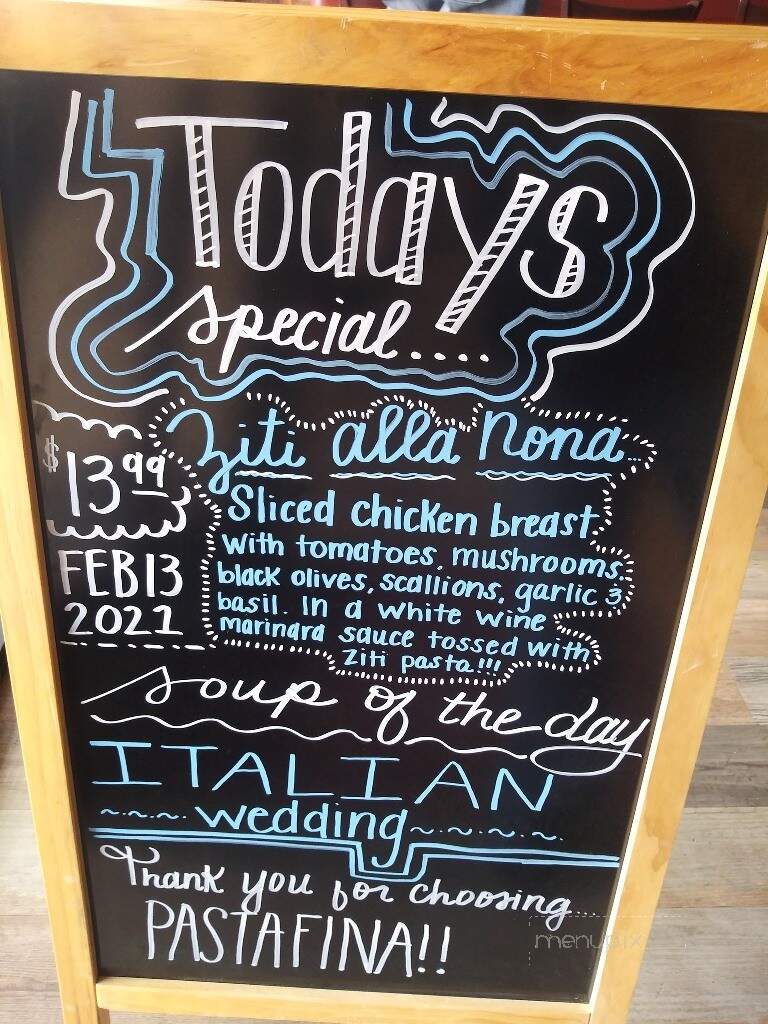 Todays
special....
Ziti alla Nona...
$13.99
FEB 13
2021
Sliced chicken breast
with tomatoes, mushrooms,
black olives, scallions, garlic &
basil. In a white wine
marinara sauce tossed with
Ziti pasta!!!
soup of the day
ITALIAN
~.~.~. wedding ~.~.~.~.
Thank you for choosing...
PASTAFINA!!
menupix